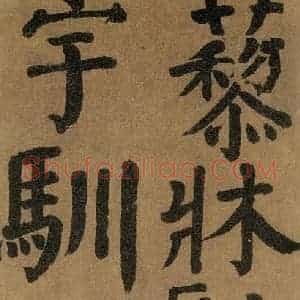 藜牀
宇馴
Shufaziliao.COM